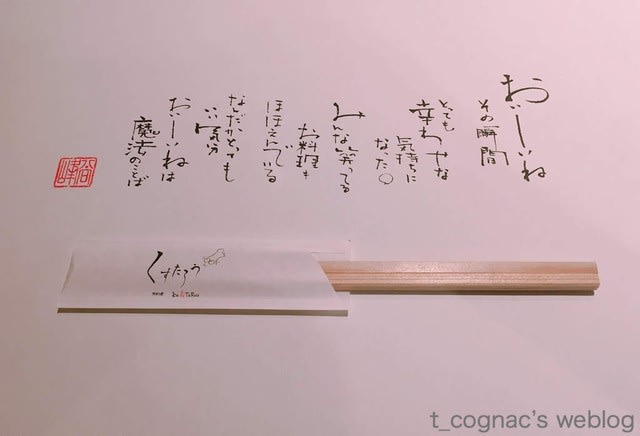 おいしいね
その瞬間
とても
幸わせな
気持ちに
なった。
みんな笑ってる
お料理も
ほほえんでいる
なんだかとっても
いい気分
おいしいねは
魔法のことば
くすたろう
t_cognac's weblog